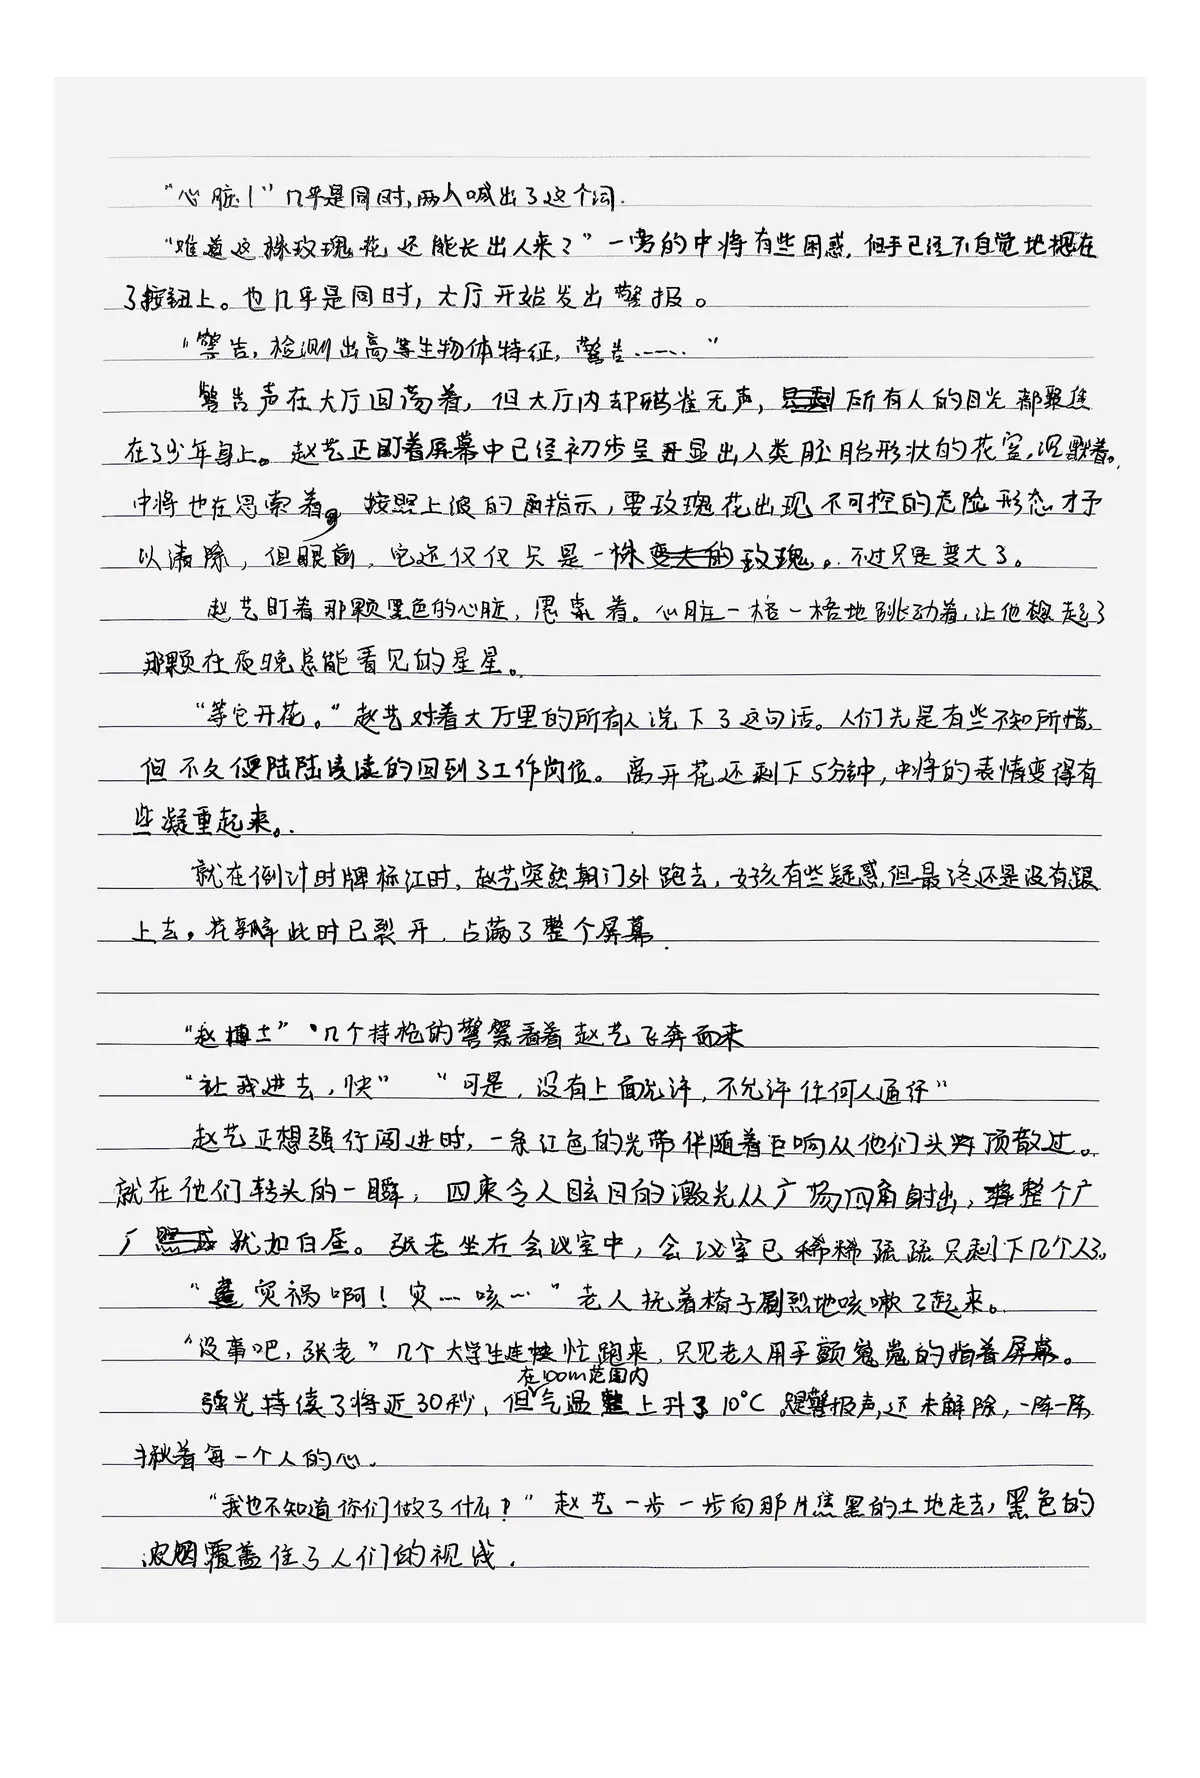 “心脏！”几乎是同时，两人喊出了这个词.
“难道这株玫瑰花还能长出人来？”一旁的中将有些困惑，但手已经不自觉地摁在
了按钮上。也几乎是同时，大厅开始发出警报。
“警告，检测出高等生物体特征，警告……”
警告声在大厅回荡着，但大厅内却鸦雀无声，所有人的目光都聚焦
在了少年身上。赵艺正盯着屏幕中已经初步呈显出人类胚胎形状的花蕊，沉默着。
中将也在思索着，按照上级的指示，要玫瑰花出现不可控的危险形态才予
以清除，但眼前，它还仅仅只是一株玫瑰。不过只是变大了。
赵艺盯着那颗黑色的心脏，思索着。心脏一格一格地跳动着，让他想起了
那颗在夜晚总能看见的星星。
“等它开花。”赵艺对着大厅里的所有人说下了这句话。人们先是有些不知所措，
但不久便陆陆续续的回到了工作岗位。离开花还剩下5分钟，中将的表情变得有
些凝重起来。
就在倒计时牌标红时，赵艺突然朝门外跑去，女孩有些疑惑，但最终还是没有跟
上去，花瓣此时已裂开，占满了整个屏幕.
“赵博士”几个持枪的警察看着赵艺飞奔而来
“让我进去，快” “可是，没有上面允许，不允许任何人通行”
赵艺正想强行闯进时，一条红色的光带伴随着巨响从他们头顶散过。
就在他们转头的一瞬，四束令人眩目的激光从广场四角射出，将整个广
厂犹如白昼。张老坐在会议室中，会议室已稀稀疏疏只剩下几个人了。
“灾祸啊！灾……咳……”老人扶着椅子剧烈地咳嗽了起来。
“没事吧，张老”几个大学生连忙跑来，只见老人用手颤嵬嵬的指着屏幕。
强光持续了将近30秒，但在100m范围内气温上升了10℃。警报声还未解除，一阵一阵
揪着每一个人的心.
“我也不知道你们做了什么？”赵艺一步一步向那片焦黑的土地走去，黑色的
浓烟覆盖住了人们的视线.